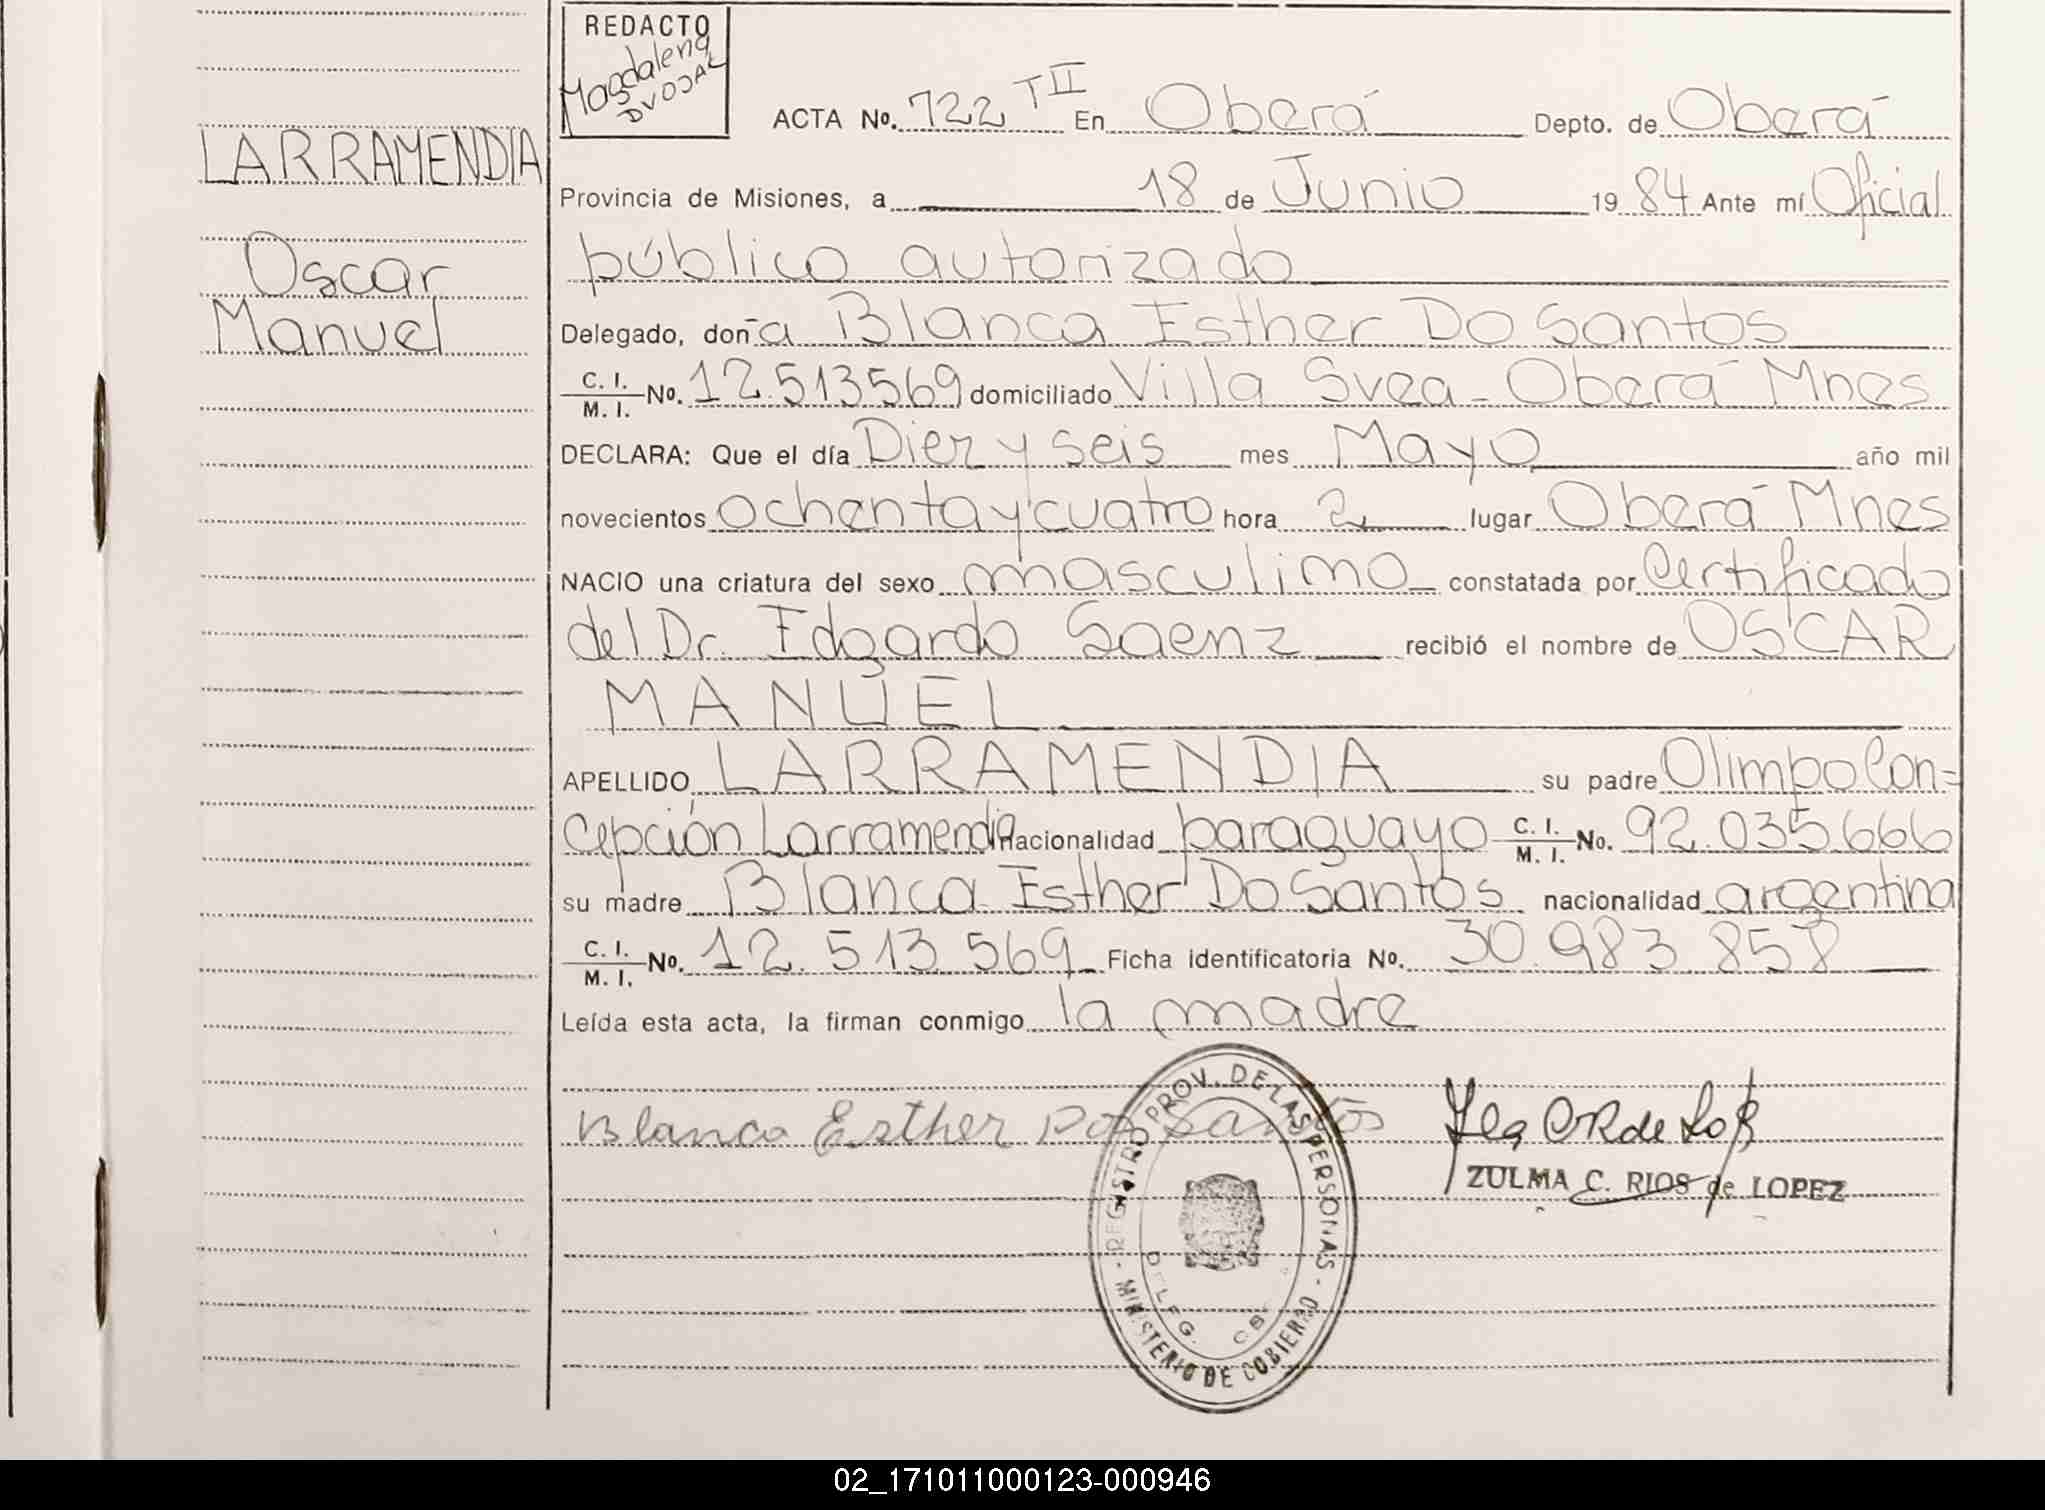 LARRAMENDIA
Oscar
Manuel
REDACTO
Magdalena
DVOJAK
ACTA No. 722 TII En Oberá Depto. de Oberá
Provincia de Misiones, a 18 de Junio 1984 Ante mí Oficial
público autorizado
Delegado, doña Blanca Esther Do Santos
C. I. / M. I. No. 12.513569 domiciliado Villa Svea - Oberá Mnes
DECLARA: Que el día Diez y seis mes Mayo año mil
novecientos ochenta y cuatro hora 2 lugar Oberá Mnes
NACIO una criatura del sexo masculino constatada por Certificado
del Dr. Edgardo Saenz recibió el nombre de OSCAR
MANUEL
APELLIDO LARRAMENDIA su padre Olimpo Con=
cepción Larramendia nacionalidad paraguayo C. I. / M. I. No. 92.035.666
su madre Blanca Esther Do Santos nacionalidad argentina
C. I. / M. I. No. 12.513.569 Ficha identificatoria No. 30.983.858
Leída esta acta, la firman conmigo la madre
Blanca Esther Dos Santos
ZULMA C. RIOS de LOPEZ
REGISTRO PROV. DE LAS PERSONAS - MINISTERIO DE GOBIERNO -
DELEG.
02_171011000123-000946